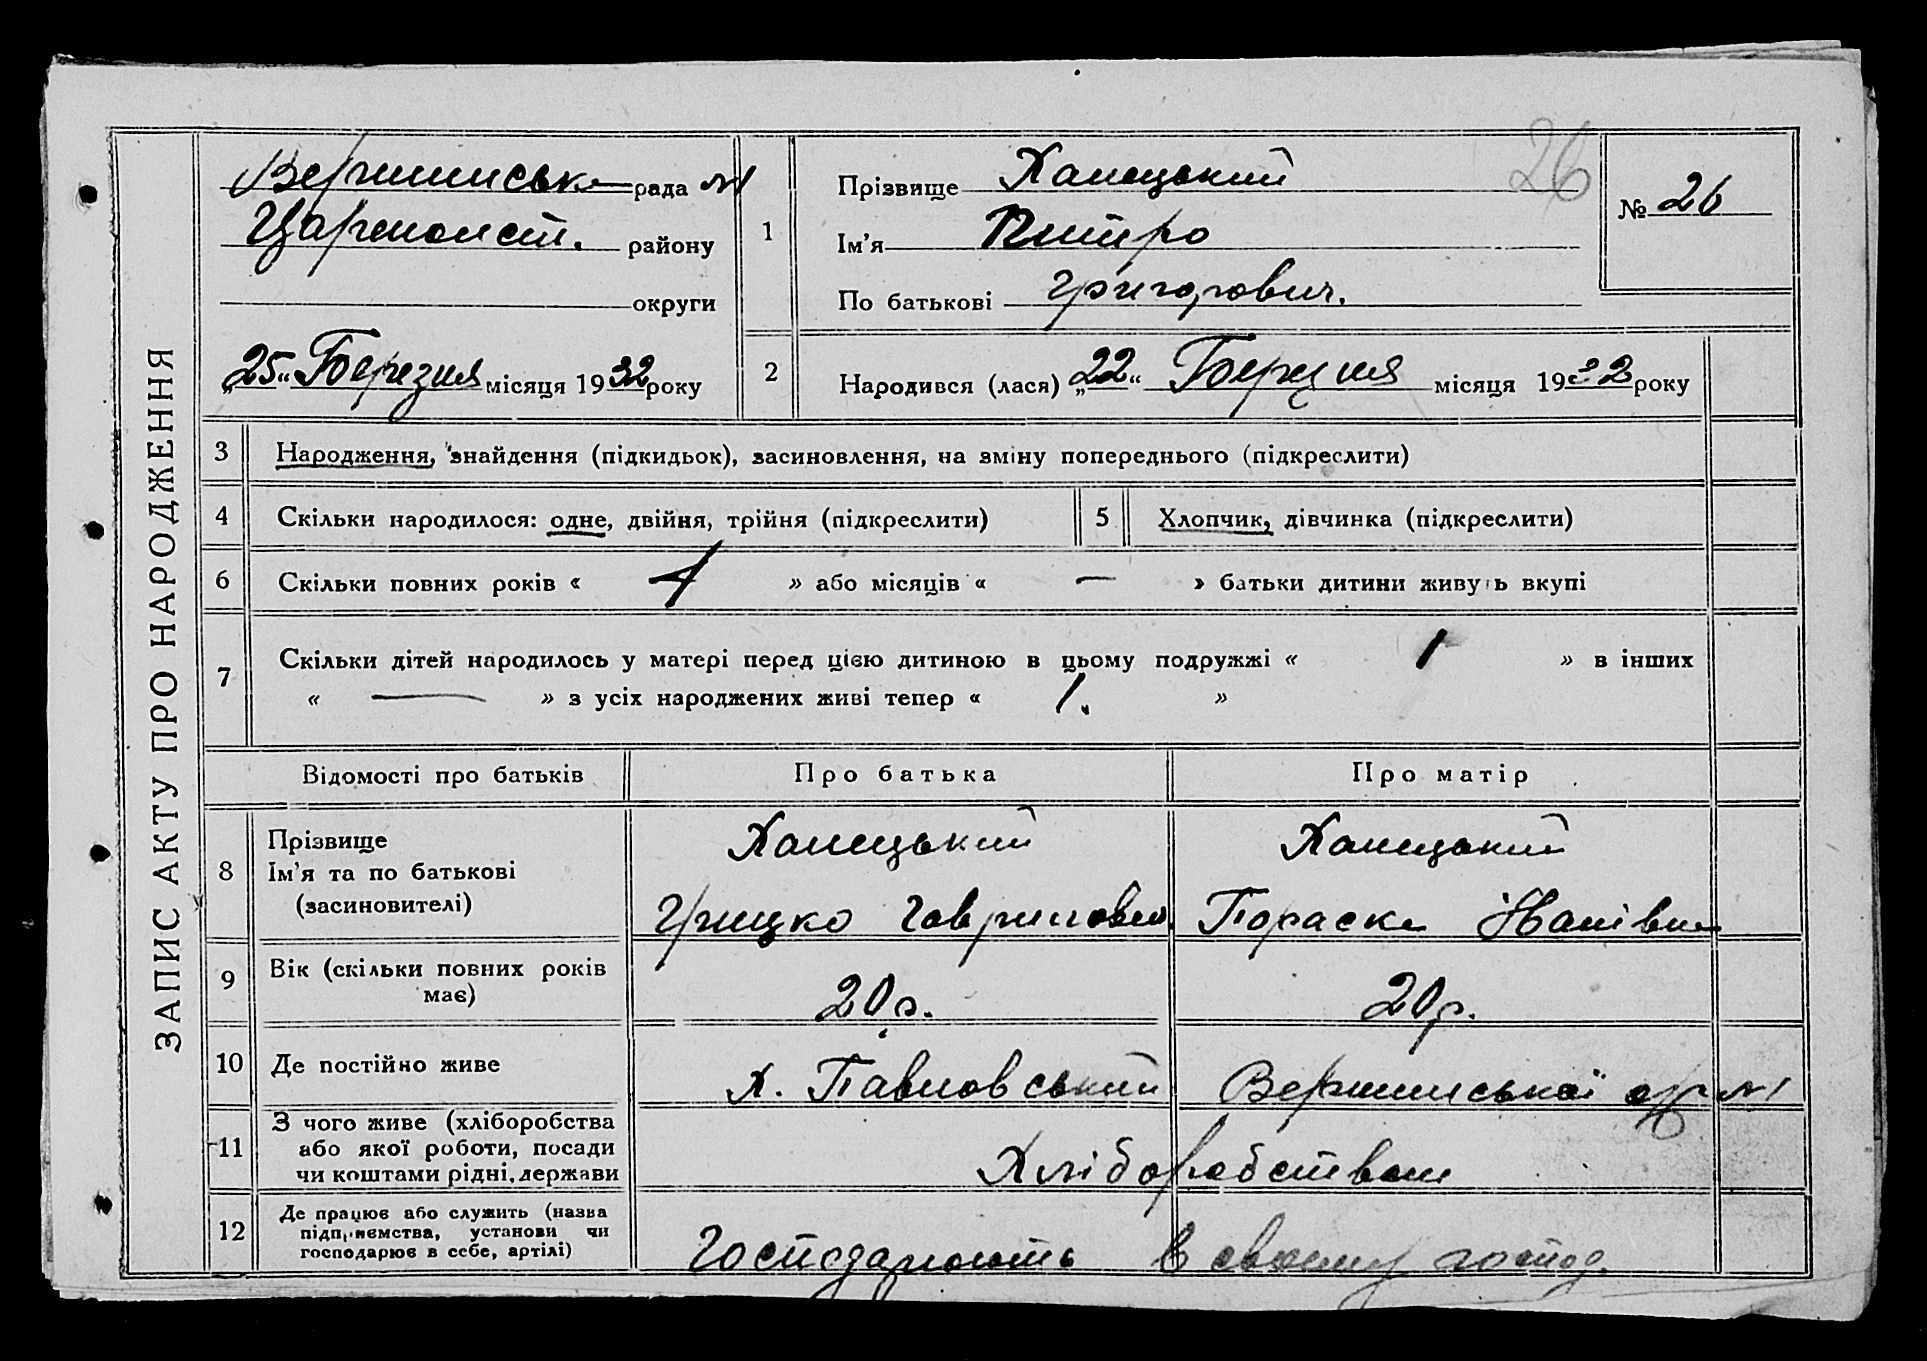 ЗАПИС АКТУ ПРО НАРОДЖЕННЯ
26
рада
району
округи
„25“ Березня місяця 1932 року
1
Прізвище Ханецький
Ім’я Питро
По батькові Григорович.
№ 26
2
Народився (лася) „22“ Березня місяця 1932 року
3 Народження, знайдення (підкидьок), засиновлення, на зміну попереднього (підкреслити)
4 Скільки народилося: одне, двійня, трійня (підкреслити)
5 Хлопчик, дівчинка (підкреслити)
6 Скільки повних років « 4 » або місяців « — » батьки дитини живуть вкупі
7 Скільки дітей народилось у матері перед цією дитиною в цьому подружжі « 1 » в інших
« — » з усіх народжених живі тепер « 1. »
Відомості про батьків Про батька Про матір
8 Прізвище
Ім’я та по батькові
(засиновителі)
Ханецький
Грицко Гаврилович
Ханецький
Параска Иванівна
9 Вік (скільки повних років
має)
20р.
20р.
10 Де постійно живе
Х. Павловський
Вершинської
11 З чого живе (хліборобства
або якої роботи, посади
чи коштами рідні, держави
Хліборобством
12 Де працює або служить (назва
підприємства, установи чи
господарює в себе, артілі)
Господарюють в своему господ.